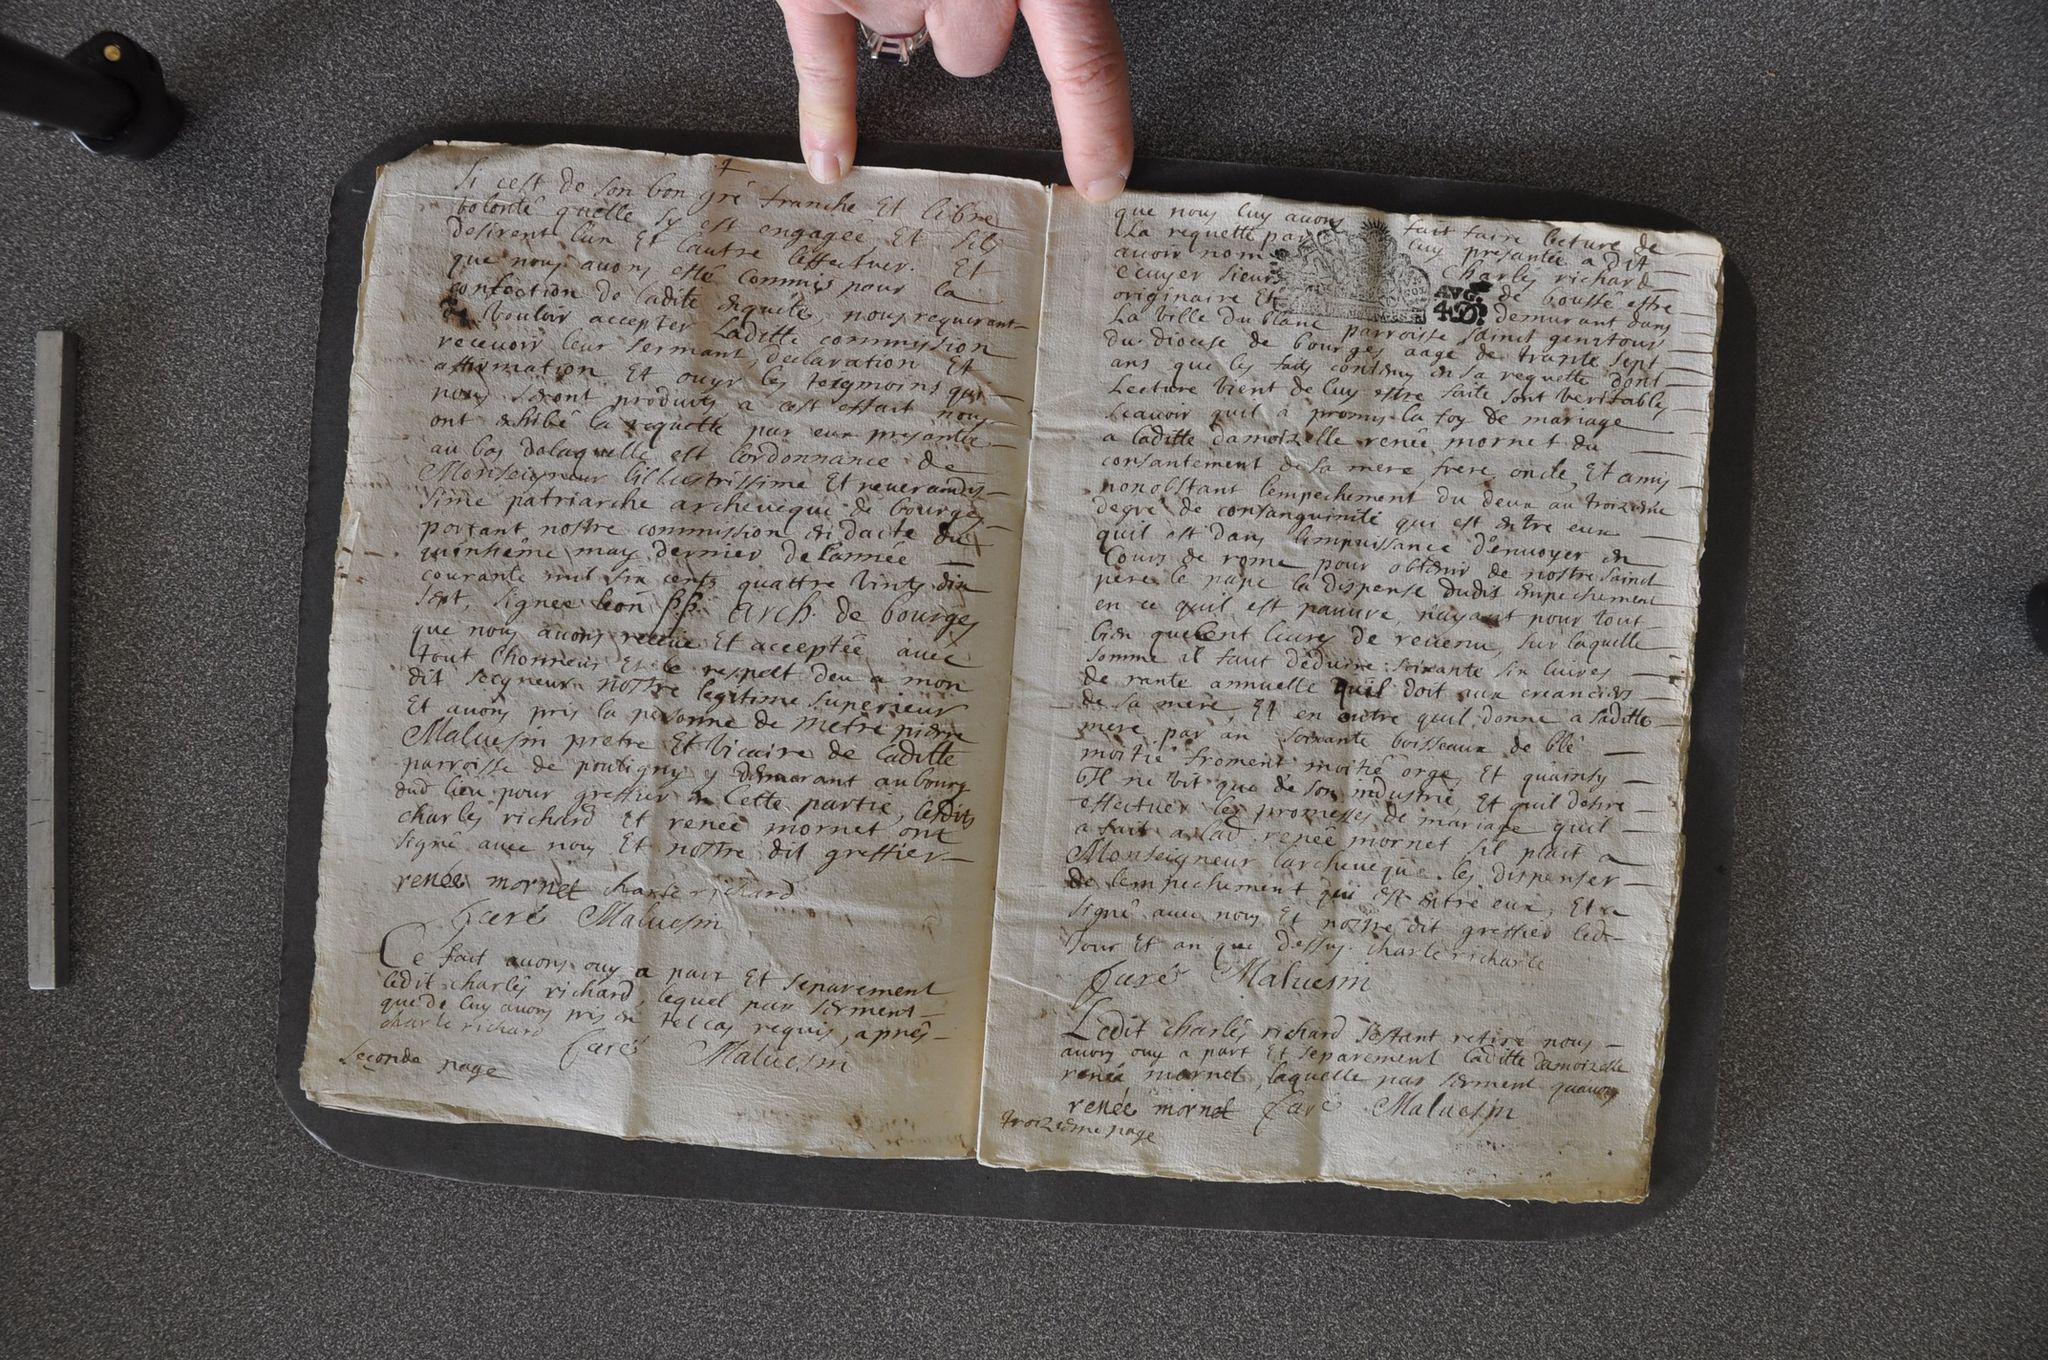 Si cest de son bon gré franche Et libre
volonté quelle sy est engagée, Et sils
desirent lun Et lautre leffectuer. Et
que nous avons esté commis pour la
confection de ladite enquéte, nous requerant
de vouloir accepter Laditte commission
recevoir leur sermant, declaration Et
affirmation Et ouyr les tesgmoins qui
nous seront produits a cest effait nous
ont exhibé la requette par eux presantée
au bas delaquelle est lordonnance de
Monseigneur lillustrissime Et reverandis-
sime patriarche archeveque de bourges
portant nostre commission en dacte du
quinsiéme may dernier de lannée
courante mil six cents quattre vints dix
sept, signee leon pp. arch. de bourges
que nous avons receue Et acceptée avec
tout lhonneur Et le respect deu a mon
dit seigneur nostre legitime superieur
Et avons pris la personne de metre pierre
Maluesin pretre Et vicaire de laditte
parroisse de pouligny y demurant au bourg
dud lieu pour greffier en cette partie, lesdits
charles richard Et renée mornet ont
signé avec nous Et nostre dit greffier
renée mornet charle richard
Faré Maluesin
Ce fait avons ouy a part Et separément
ledit charles richard, lequel par serment
que de luy avons pris en tel cas requis, aprés
charle richard Faré Maluesin
seconde page
que nous luy avons fait faire lecture de
La requette par luy presantée a dit
avoir nom Charles richard
ecuyer sieur de boussé estre
AVG.
originaire Et demurant dans
La ville du blanc parroisse sainct genitous
du diocese de bourges aagé de trante sept
ans que les faits contenu en sa requette dont
Lecture vient de luy estre faite sont veritables
scavoir quil a promis la foy de mariage
a laditte damoizelle renée mornet du
consantement de sa mere, frere, oncle, Et amis
nonobstant lempechement du deux au troizieme
degré de consanguinité qui est entre eux
quil est dans limpuissance d'envoyer en
Cours de rome pour obtenir de nostre sainct
pere le pape la dispense dudit empechement
en ce quil est pauvre, nayant pour tout
bien que cent livres de revenu, sur laquelle
somme il faut déduire soixante six livres
de rante annuelle quil doit aux creanciers
de sa mere, Et en outre quil donne a saditte
mere par an soixante boisseaux de blé
moitié froment moitié orge, Et quainsy
Il ne vit que de son industrie, Et quil desire
effectuer les promesses de mariage quil
a fait a lad. renée mornet sil plait a
Monseigneur larcheveque les dispenser
de lempechement qui est entre eux, Et a
signé avec nous Et nostre dit greffier led
Jour Et an que dessus. charle richard
Faré Maluesin
Ledit charles richard sestant retiré nous
avons ouy a part Et separément laditte damoizelle
renée mornet, laquelle par serment quavons
renée mornet Faré Maluesin
troiziéme page